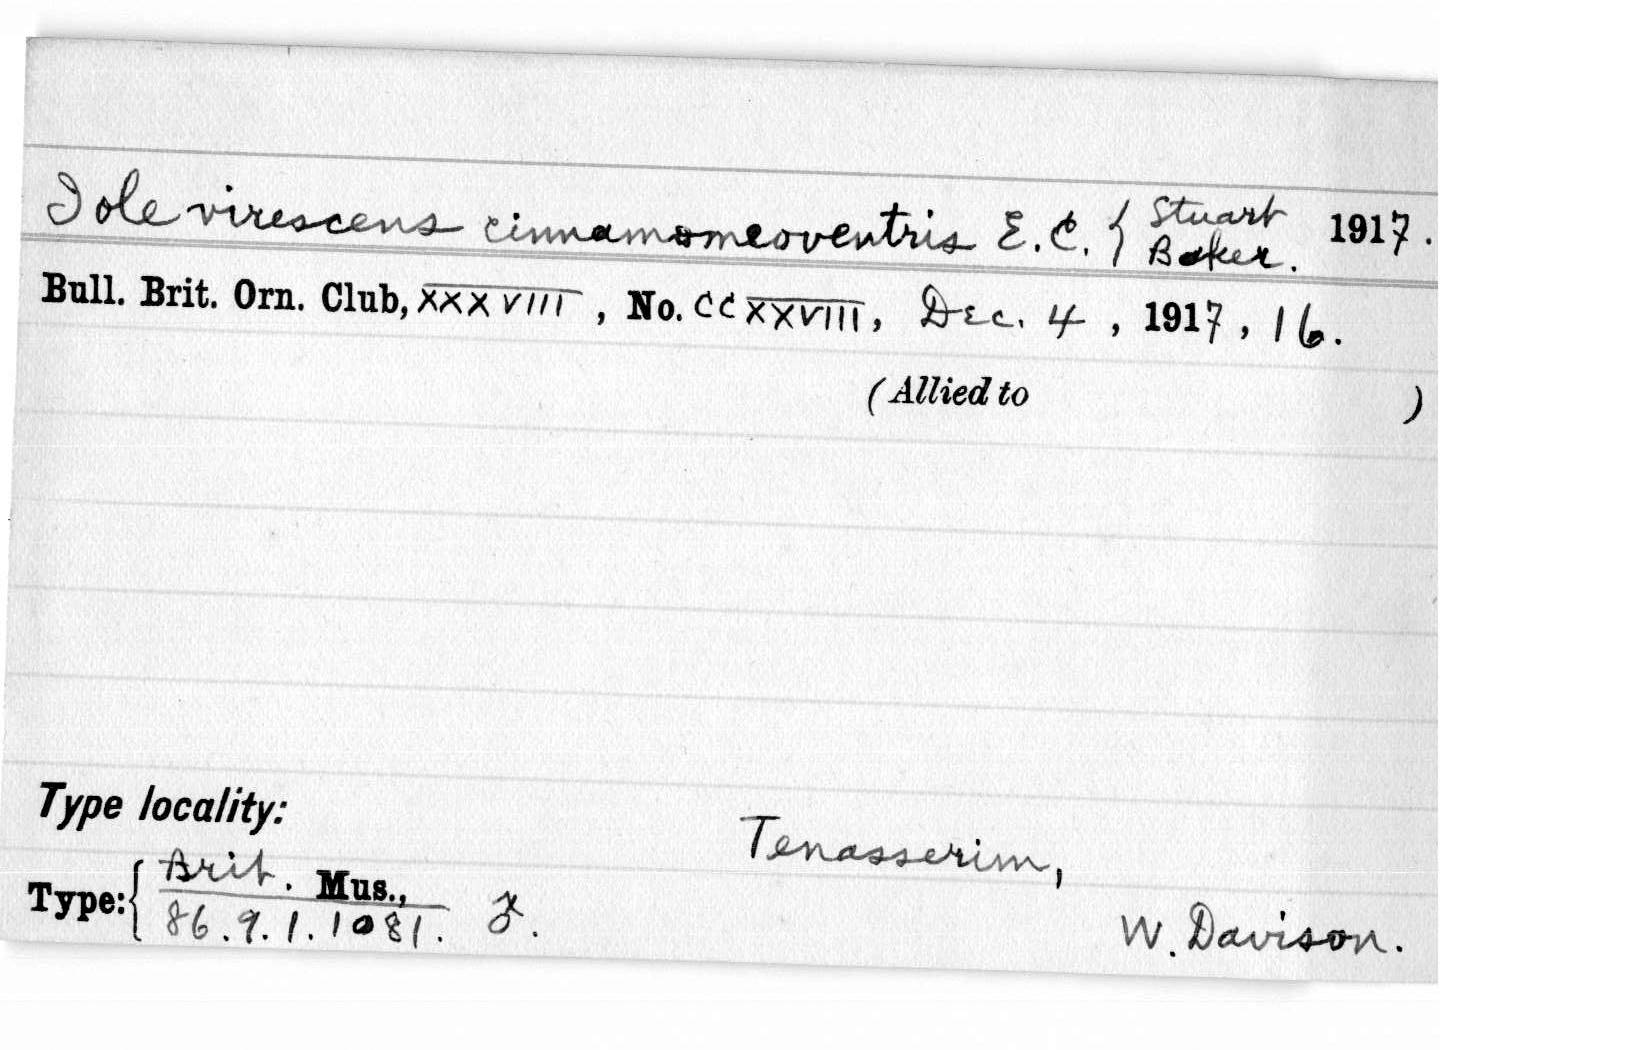 Iole virescens cinnamomeoventris E. C. { Stuart Baker. 1917.
Bull. Brit. Orn. Club, XXXVIII, No. CCXXVIII, Dec. 4, 1917, 16.
(Allied to )
Type locality:
Tenasserim,
Type: { Brit. Mus.,
86.9.1.1081. ♂.
W. Davison.